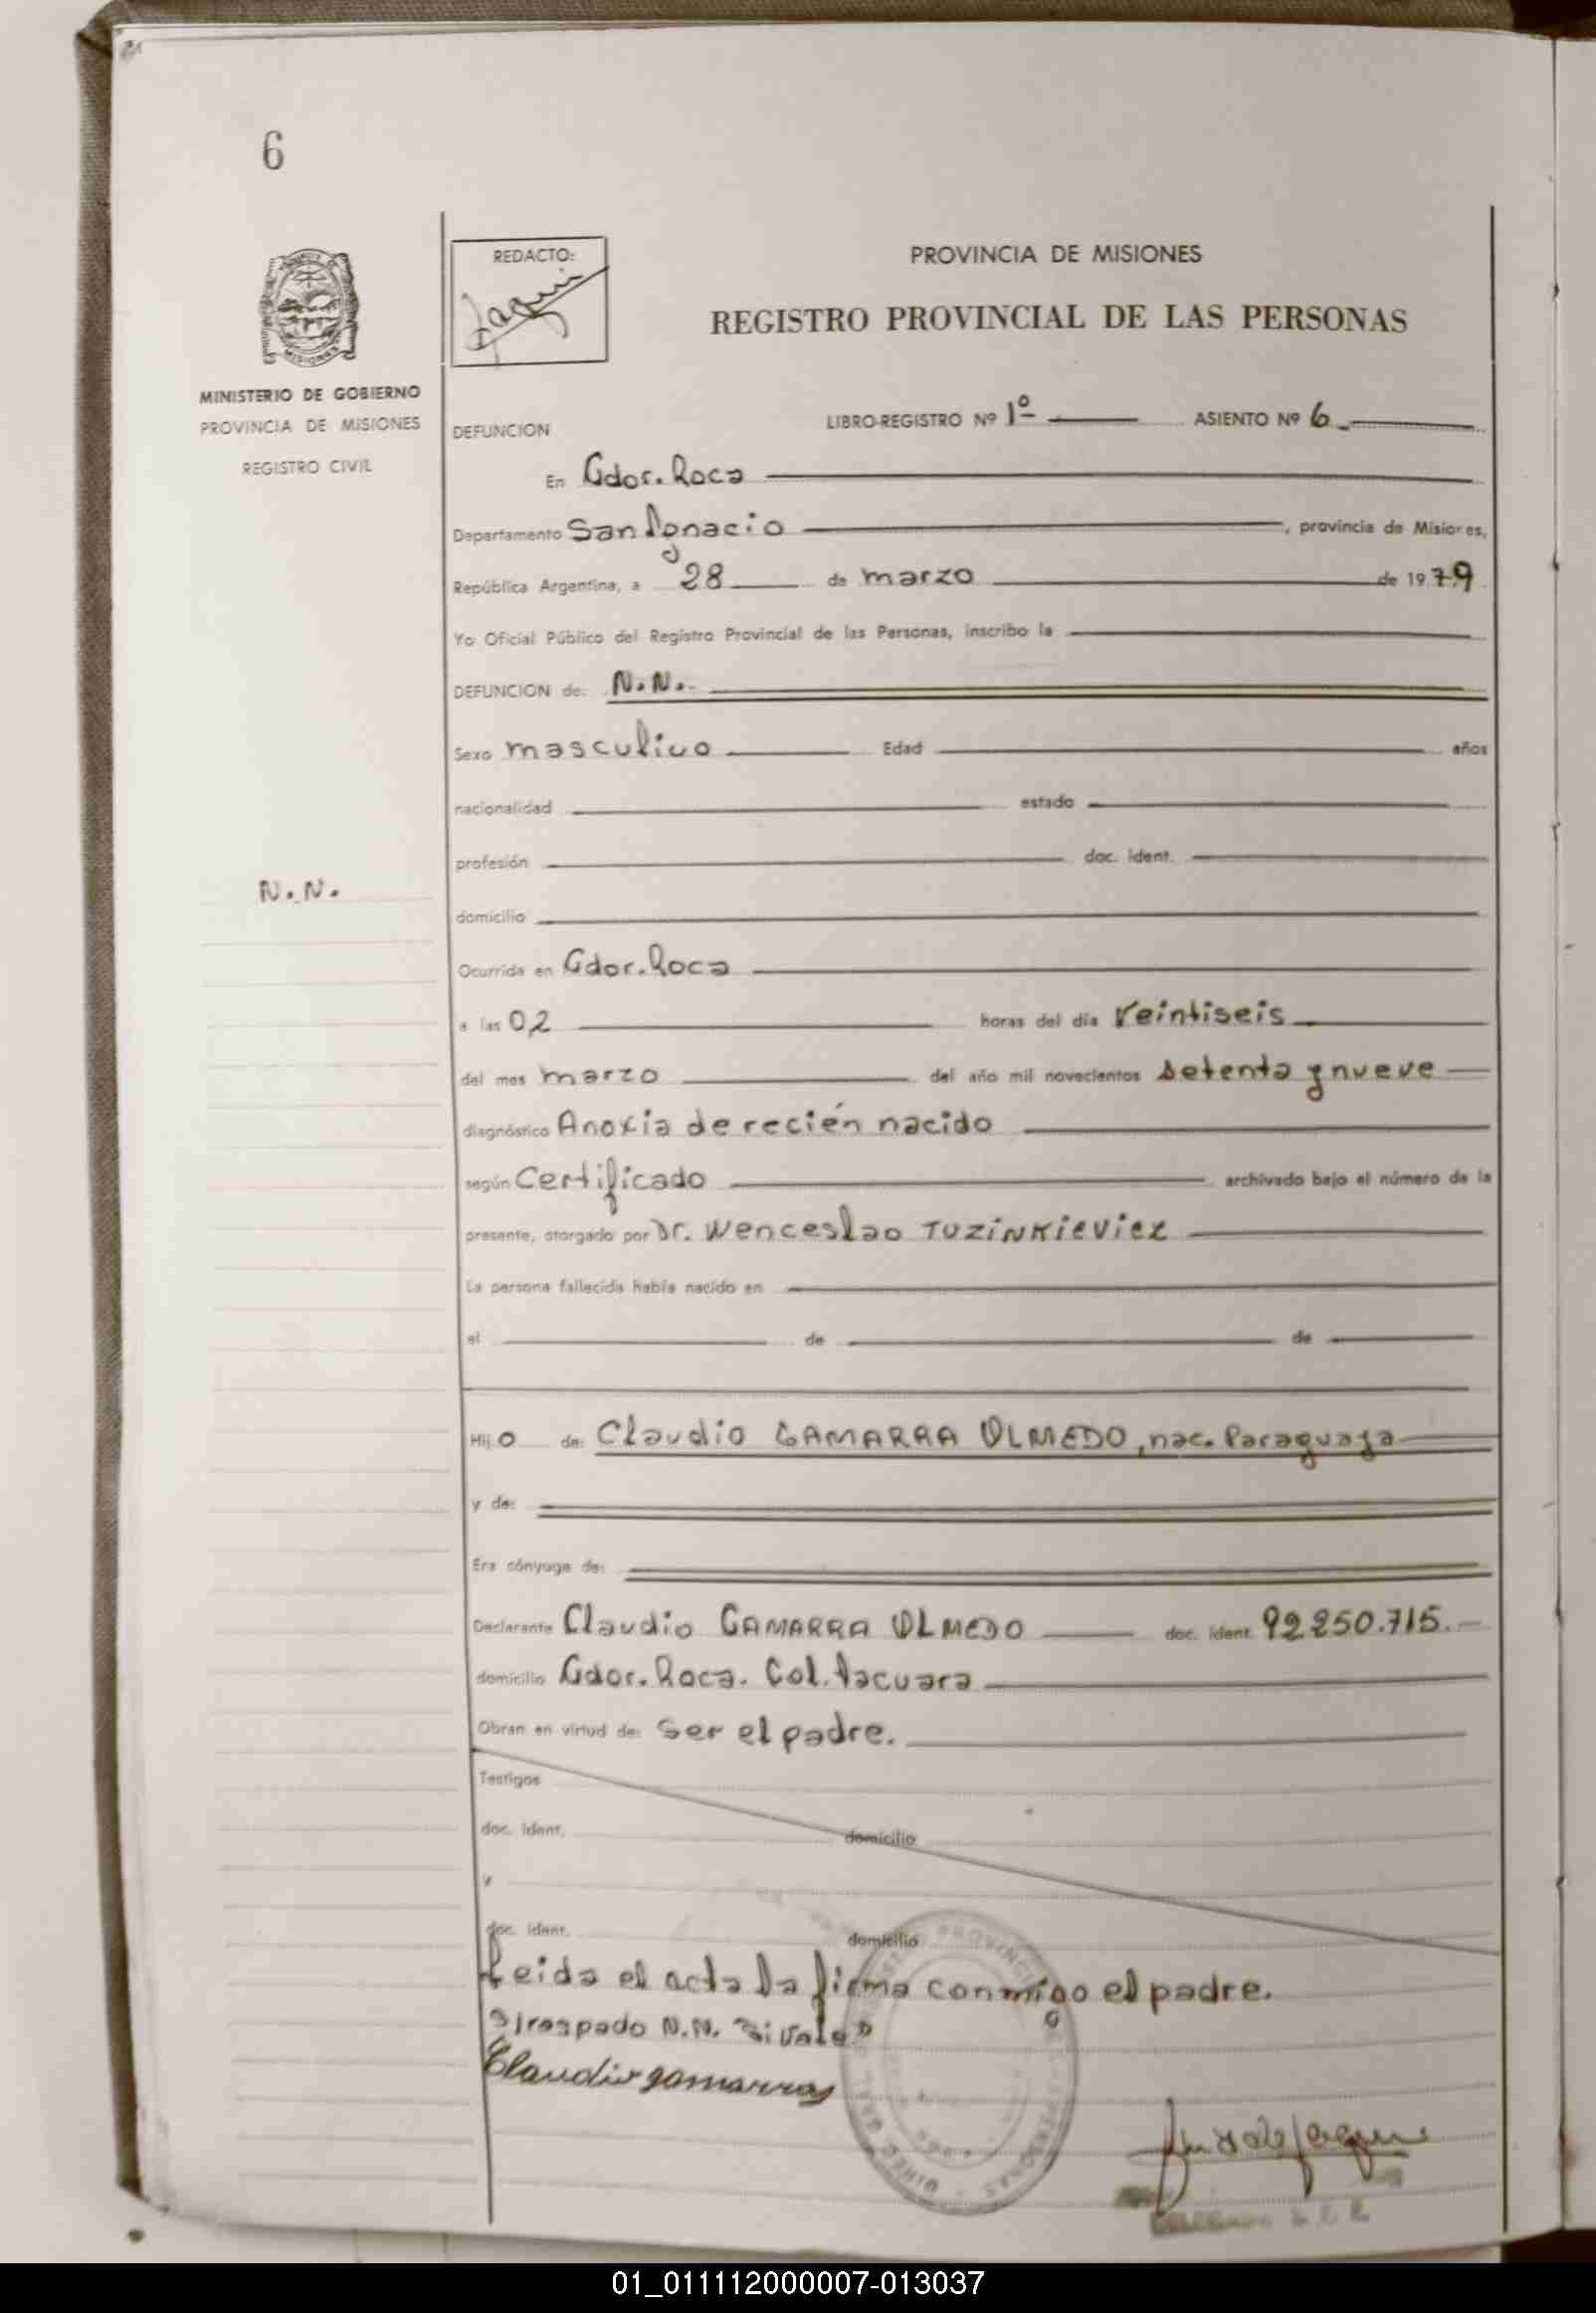 6
REDACTO:
PROVINCIA DE MISIONES
REGISTRO PROVINCIAL DE LAS PERSONAS
MISIONES
MINISTERIO DE GOBIERNO
PROVINCIA DE MISIONES
REGISTRO CIVIL
DEFUNCION LIBRO-REGISTRO Nº 1º ASIENTO Nº 6
En Gdor. Roca
Departamento San Ignacio, provincia de Misiones,
República Argentina, a 28 de marzo de 1979
Yo Oficial Público del Registro Provincial de las Personas, inscribo la
DEFUNCION de: N.N.
Sexo masculino Edad años
nacionalidad estado
profesión doc. ident.
N.N.
domicilio
Ocurrida en Gdor. Roca
a las 02 horas del día Veintiseis
del mes marzo del año mil novecientos setenta y nueve
diagnóstico Anoxia de recién nacido
según Certificado archivado bajo el número de la
presente, otorgado por Dr. Wenceslao TUZiNKieViez
La persona fallecida había nacido en
el de de
Hijo de: Claudio GAMARRA OLMEDO, nac. Paraguaya
y de:
Era cónyuge de:
Declarante Claudio GAMARRA OLMEDO doc. ident. 92.250.715.
domicilio Gdor. Roca. Col. Tacuara
Obran en virtud de: Ser el padre.
Testigos
doc. ident. domicilio
y
doc. ident. domicilio
Leida el acta la firma conmigo el padre.
N.N. "Si Vale"
Claudio gamarra
PERSONAS
01_011112000007-013037